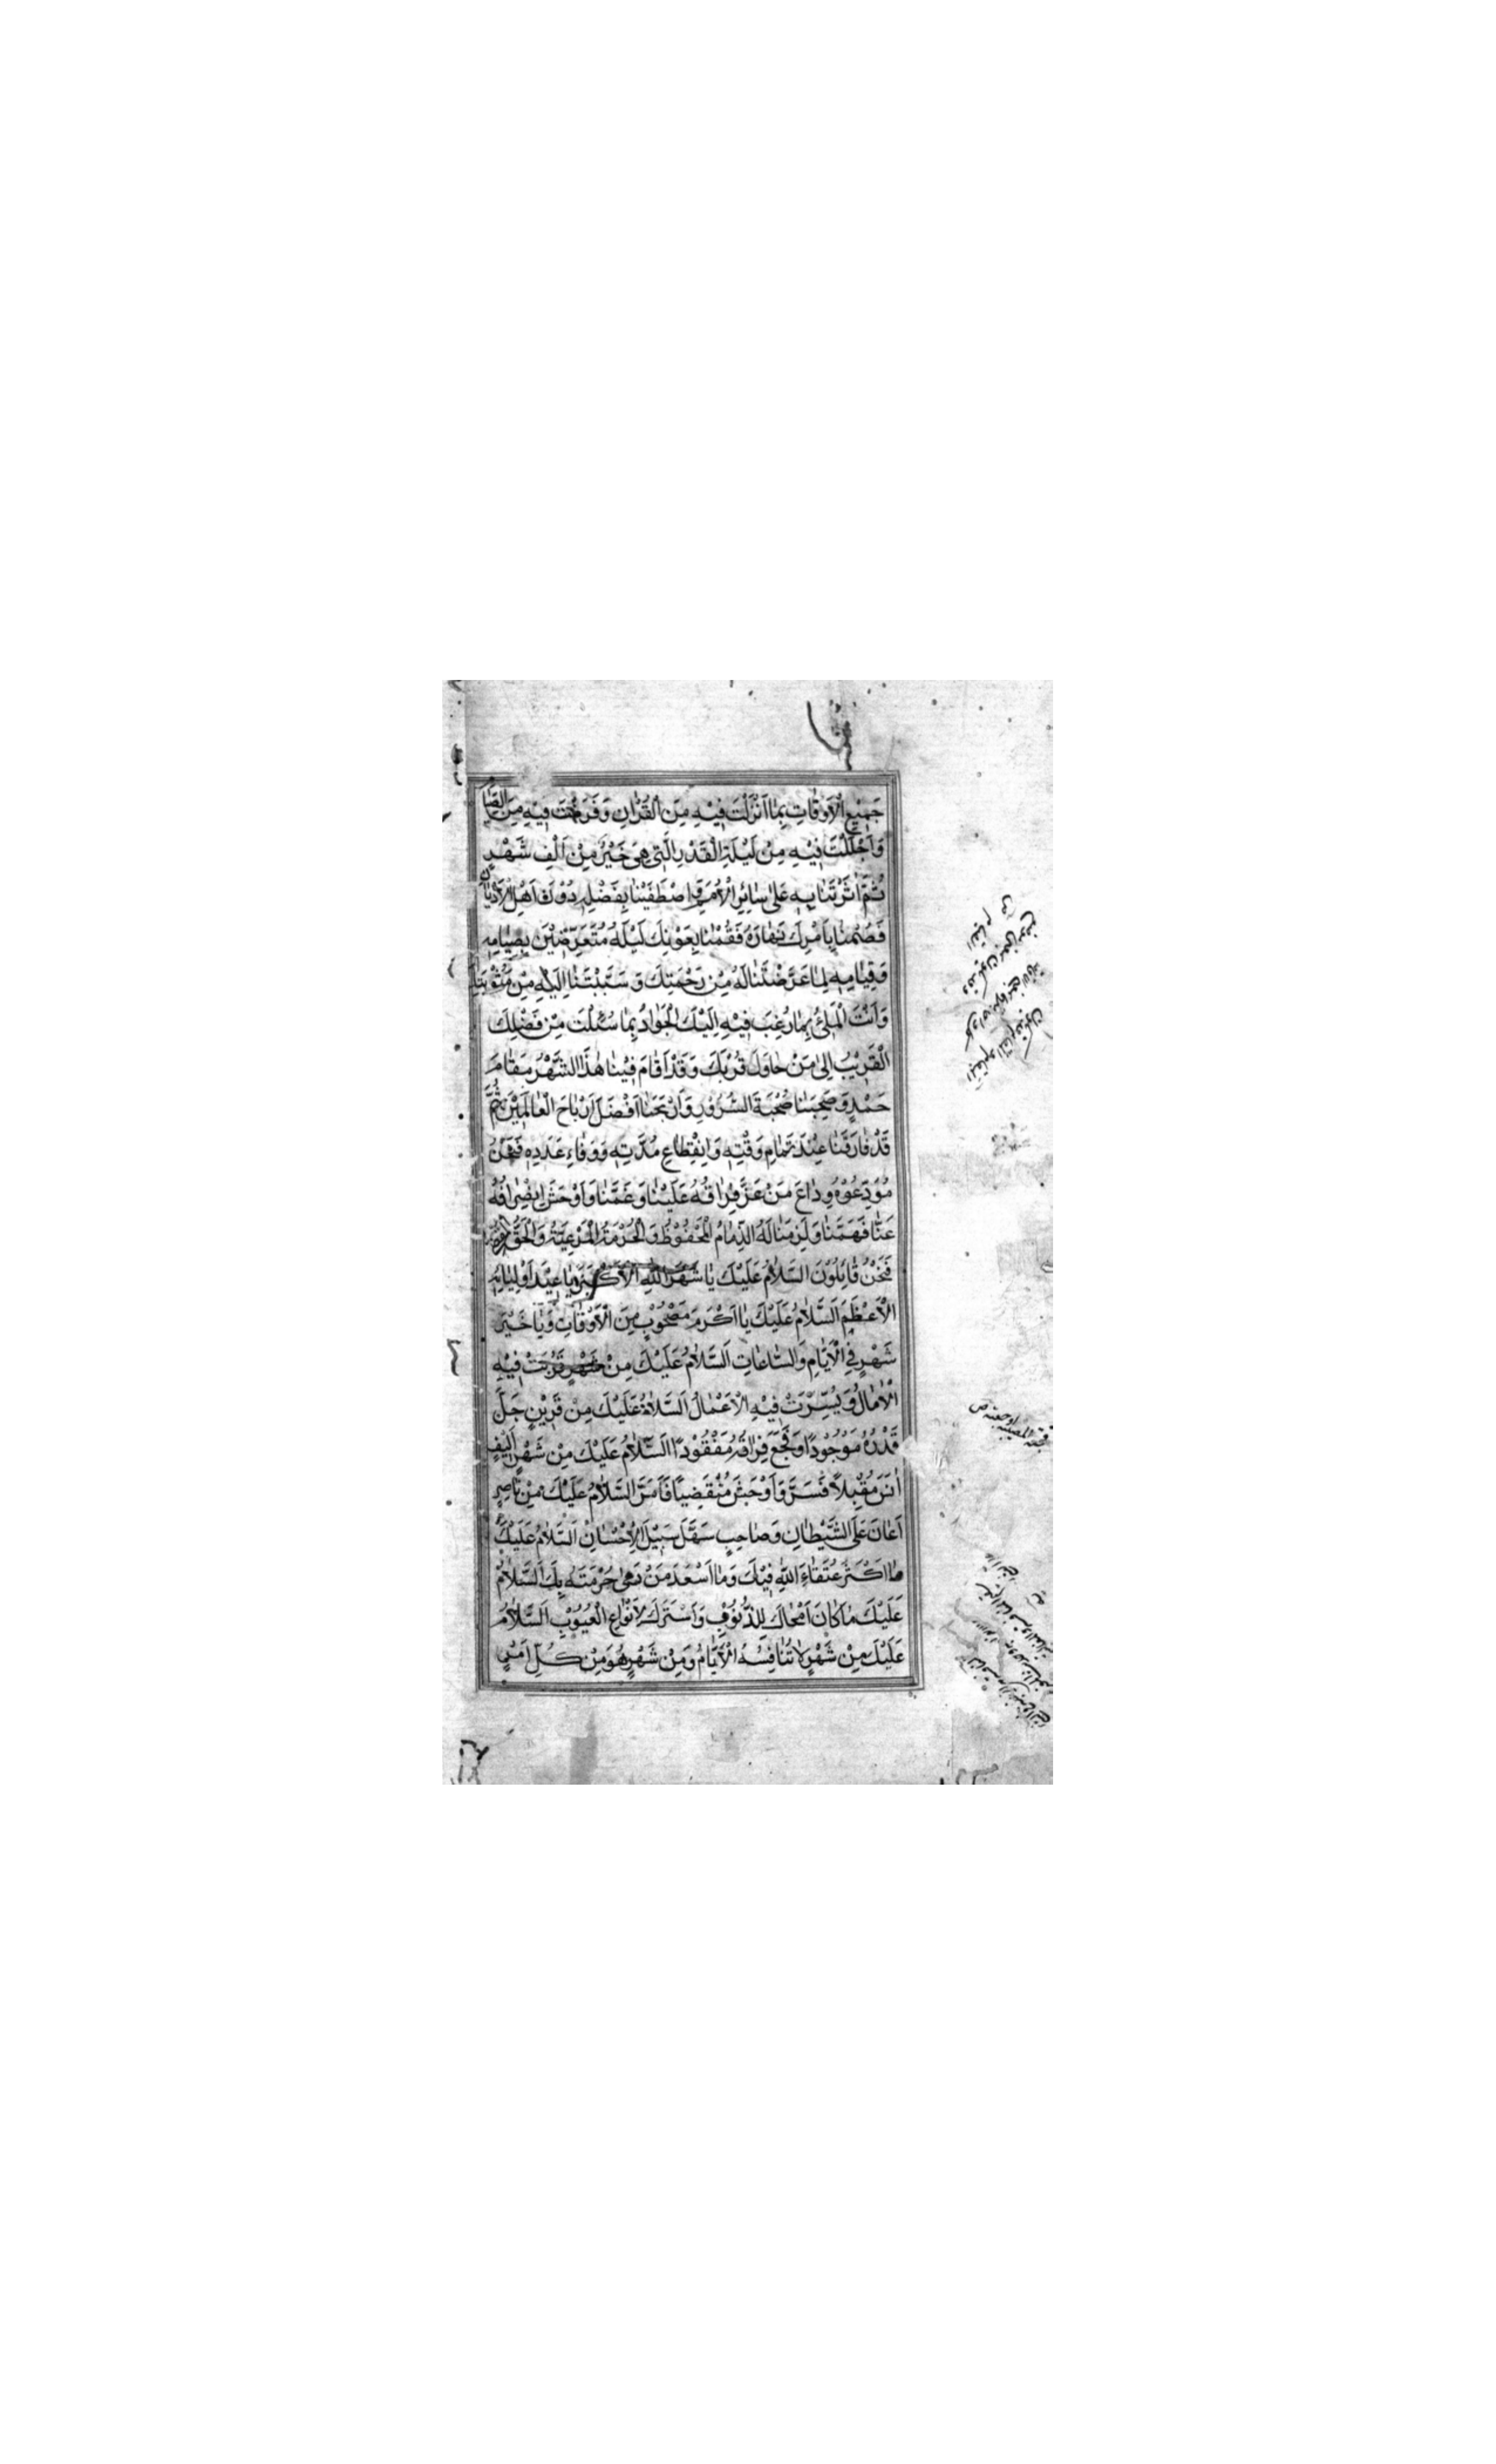 جَمِيعِ الْاَوْقَاتِ بِمَا اَنْزَلْتَ فِيهِ مِنَ الْقُرْاٰنِ وَفَرَضْتَ فِيهِ مِنَ الصِّيَامِ
وَاَجْلَلْتَ فِيهِ مِنْ لَيْلَةِ الْقَدْرِ الَّتِي هِيَ خَيْرٌ مِنْ اَلْفِ شَهْرٍ
ثُمَّ اٰثَرْتَنَا بِهِ عَلٰى سَائِرِ الْاُمَمِ وَاصْطَفَيْتَنَا بِفَضْلِهِ دُوْنَ اَهْلِ الْاَدْيَانِ
فَصُمْنَا بِاَمْرِكَ نَهَارَهُ فَقُمْنَا بِعَوْنِكَ لَيْلَهُ مُتَعَرِّضِيْنَ بِصِيَامِهِ
وَقِيَامِهِ لِمَا عَرَّضْتَنَا لَهُ مِنْ رَحْمَتِكَ وَسَبَّبْتَنَا اِلَيْهِ مِنْ مَثُوْبَتِكَ
وَاَنْتَ الْمَلِئُ بِمَا رُغِبَ فِيْهِ اِلَيْكَ الْجَوَادُ بِمَا سُئِلْتَ مِنْ فَضْلِكَ
الْقَرِيْبُ اِلٰى مَنْ حَاوَلَ قُرْبَكَ وَقَدْ اَقَامَ فِيْنَا هٰذَا الشَّهْرُ مَقَامَ
حَمْدٍ وَصَحِبَنَا صُحْبَةَ السُّرُوْرِ وَاَرْبَحَنَا اَفْضَلَ اَرْبَاحِ الْعَالَمِيْنَ ثُمَّ
قَدْ فَارَقَنَا عِنْدَ تَمَامِ وَقْتِهِ وَانْقِطَاعِ مُدَّتِهِ وَوَفَاءِ عَدَدِهِ فَنَحْنُ
مُوَدِّعُوْهُ وِدَاعَ مَنْ عَزَّ فِرَاقُهُ عَلَيْنَا وَغَمَّنَا وَاَوْحَشَ انْصِرَافُهُ
عَنَّا فَهَمَّنَا وَلَزِمَنَا لَهُ الذِّمَامُ الْمَحْفُوْظُ وَالْحُرْمَةُ الْمَرْعِيَّةُ وَالْحَقُّ
فَنَحْنُ قَائِلُوْنَ السَّلَامُ عَلَيْكَ يَا شَهْرَ اللّٰهِ الْاَكْبَرَ وَيَا عِيْدَ اَوْلِيَائِهِ
الْاَعْظَمَ السَّلَامُ عَلَيْكَ يَا اَكْرَمَ مَصْحُوْبٍ مِنَ الْاَوْقَاتِ وَيَا خَيْرَ
شَهْرٍ فِي الْاَيَّامِ وَالسَّاعَاتِ السَّلَامُ عَلَيْكَ مِنْ شَهْرٍ قَرُبَتْ فِيْهِ
الْاٰمَالُ وَيُسِّرَتْ فِيْهِ الْاَعْمَالُ السَّلَامُ عَلَيْكَ مِنْ قَرِيْنٍ جَلَّ
قَدْرُهُ مَوْجُوْدًا وَفَجَعَ فِرَاقُهُ مَفْقُوْدًا السَّلَامُ عَلَيْكَ مِنْ شَهْرٍ اَلِيْفٍ
اٰنَسَ مُقْبِلًا فَسَرَّ وَاَوْحَشَ مُنْقَضِيًا فَاَمَرَّ السَّلَامُ عَلَيْكَ مِنْ نَاصِرٍ
اَعَانَ عَلَى الشَّيْطَانِ وَصَاحِبٍ سَهَّلَ سَبِيْلَ الْاِحْسَانِ السَّلَامُ عَلَيْكَ
مَا اَكْثَرَ عُتَقَاءَ اللّٰهِ فِيْكَ وَمَا اَسْعَدَ مَنْ رَعٰى حُرْمَتَهُ بِكَ السَّلَامُ
عَلَيْكَ مَا كَانَ اَمْحَاكَ لِلذُّنُوْبِ وَاَسْتَرَكَ لِاَنْوَاعِ الْعُيُوْبِ السَّلَامُ
عَلَيْكَ مِنْ شَهْرٍ لَا تُنَافِسُهُ الْاَيَّامُ وَمِنْ شَهْرٍ هُوَ مِنْ كُلِّ اَمْرٍ